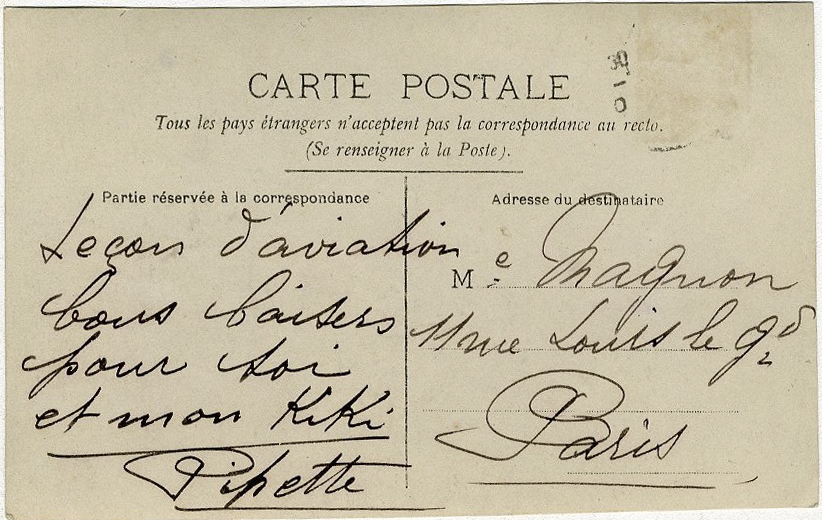 CARTE POSTALE
Tous les pays étrangers n'acceptent pas la correspondance au recto.
(Se renseigner à la Poste).
Partie réservée à la correspondance
Leçon d'aviation
bons baisers
pour toi
et mon KiKi
Pipette
Adresse du destinataire
Me Magnon
11 rue Louis le Gd
Paris